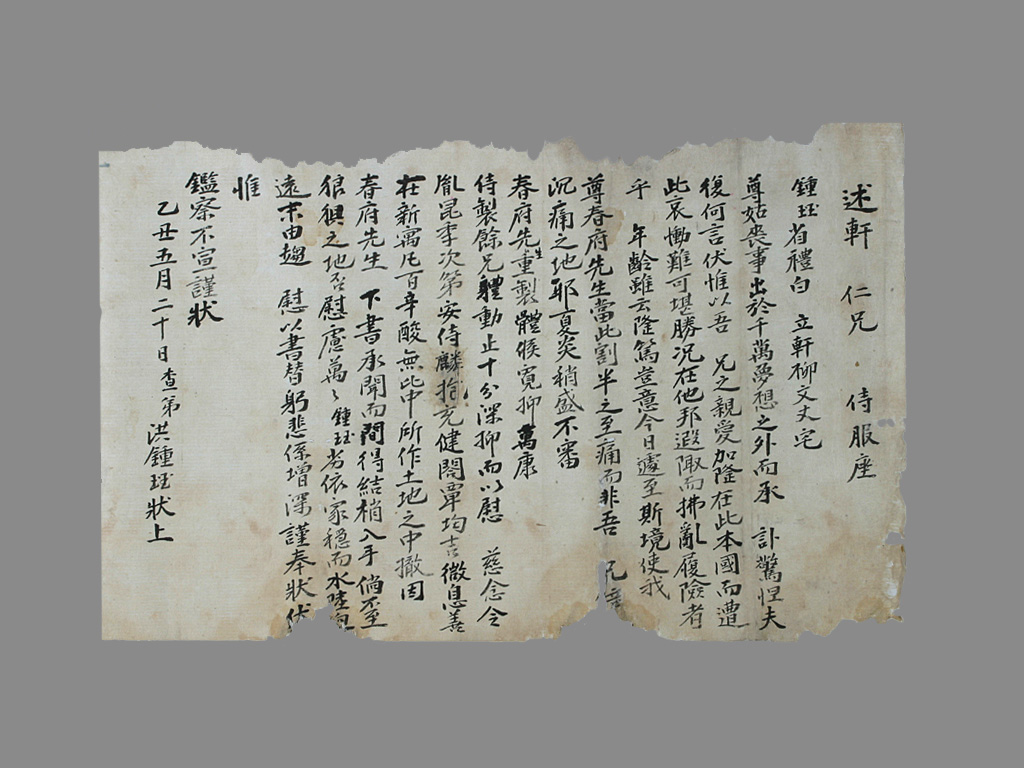 述軒 仁兄 侍服座
鍾珏省禮白 立軒柳文丈宅
尊姑喪事出於千萬夢想之外而承 訃驚怛夫
復何言伏惟以吾 兄之親愛加隆在此本國而遭
此哀慟難可堪勝況在他邦遐陬而拂亂履險者
乎 年齡雖云隆篤豈意今日遽至斯境使我
尊春府先生當此割半之至痛而非吾 兄
沉痛之地耶夏炎稍盛不審
春府先生重製體候寬抑萬康
侍製餘兄體動止十分深抑而以慰 慈念令
胤昆季次第安侍麟抱充健閤覃均吉微息善
在新寓凡百辛酸無比中所作土地之中撤因
春府先生 下書承聞而間得結梢入手倘不至
狼狽之地否慰慮萬々鍾珏劣依家穩而水陸
遠末由趨 慰以書替躬悲係增深謹奉狀伏
惟
鑑察不宣謹狀
乙丑五月二十日查弟洪鍾珏狀上